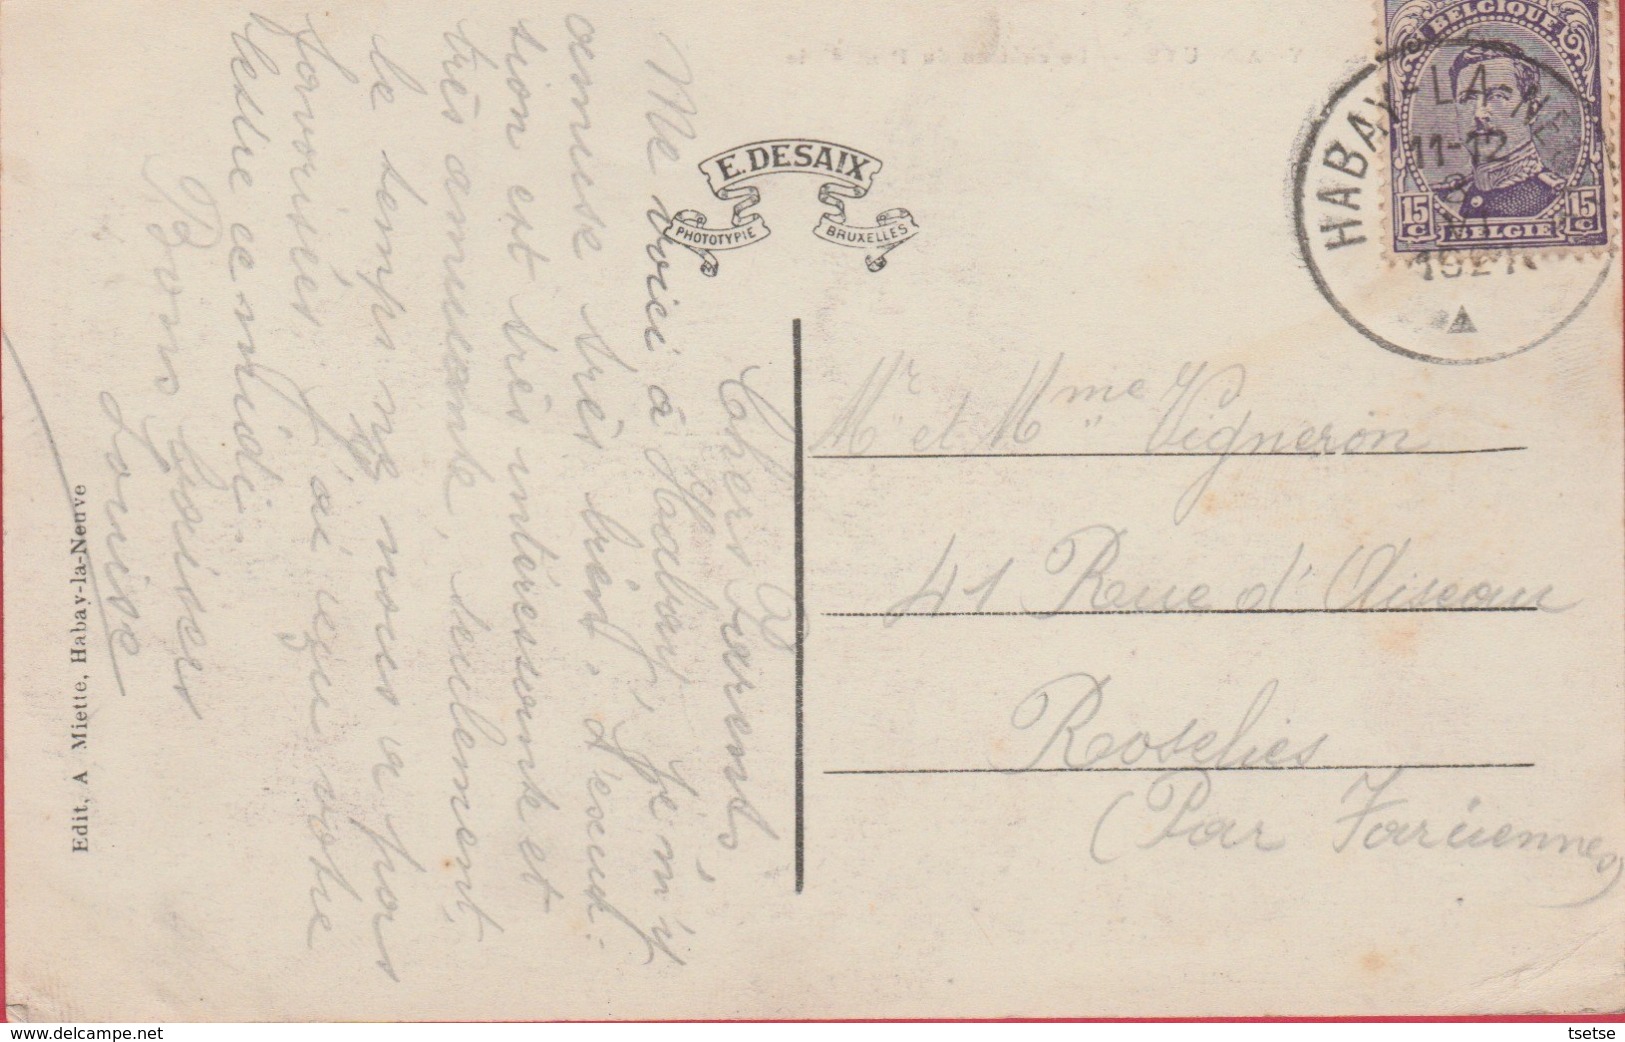 BELGIQUE
15 C
15 C
BELGIE
HABAY-LA-NEUVE
11-12
E. DESAIX
PHOTOTYPIE
BRUXELLES
Edit. A Miette, Habay-la-Neuve
Chers Parents
Me voici à Habay, je m'y
amuse très bien. L'excur-
sion est très intéressante et
très amusante, seulement,
le temps ne nous a pas
favorisés. J'ai reçu votre
lettre ce midi.
Bons baisers
Louise
Mr et Mme Vigneron
41 Rue d'Aiseau
Roselies
(Par Farciennes)
tsetse
www.delcampe.net